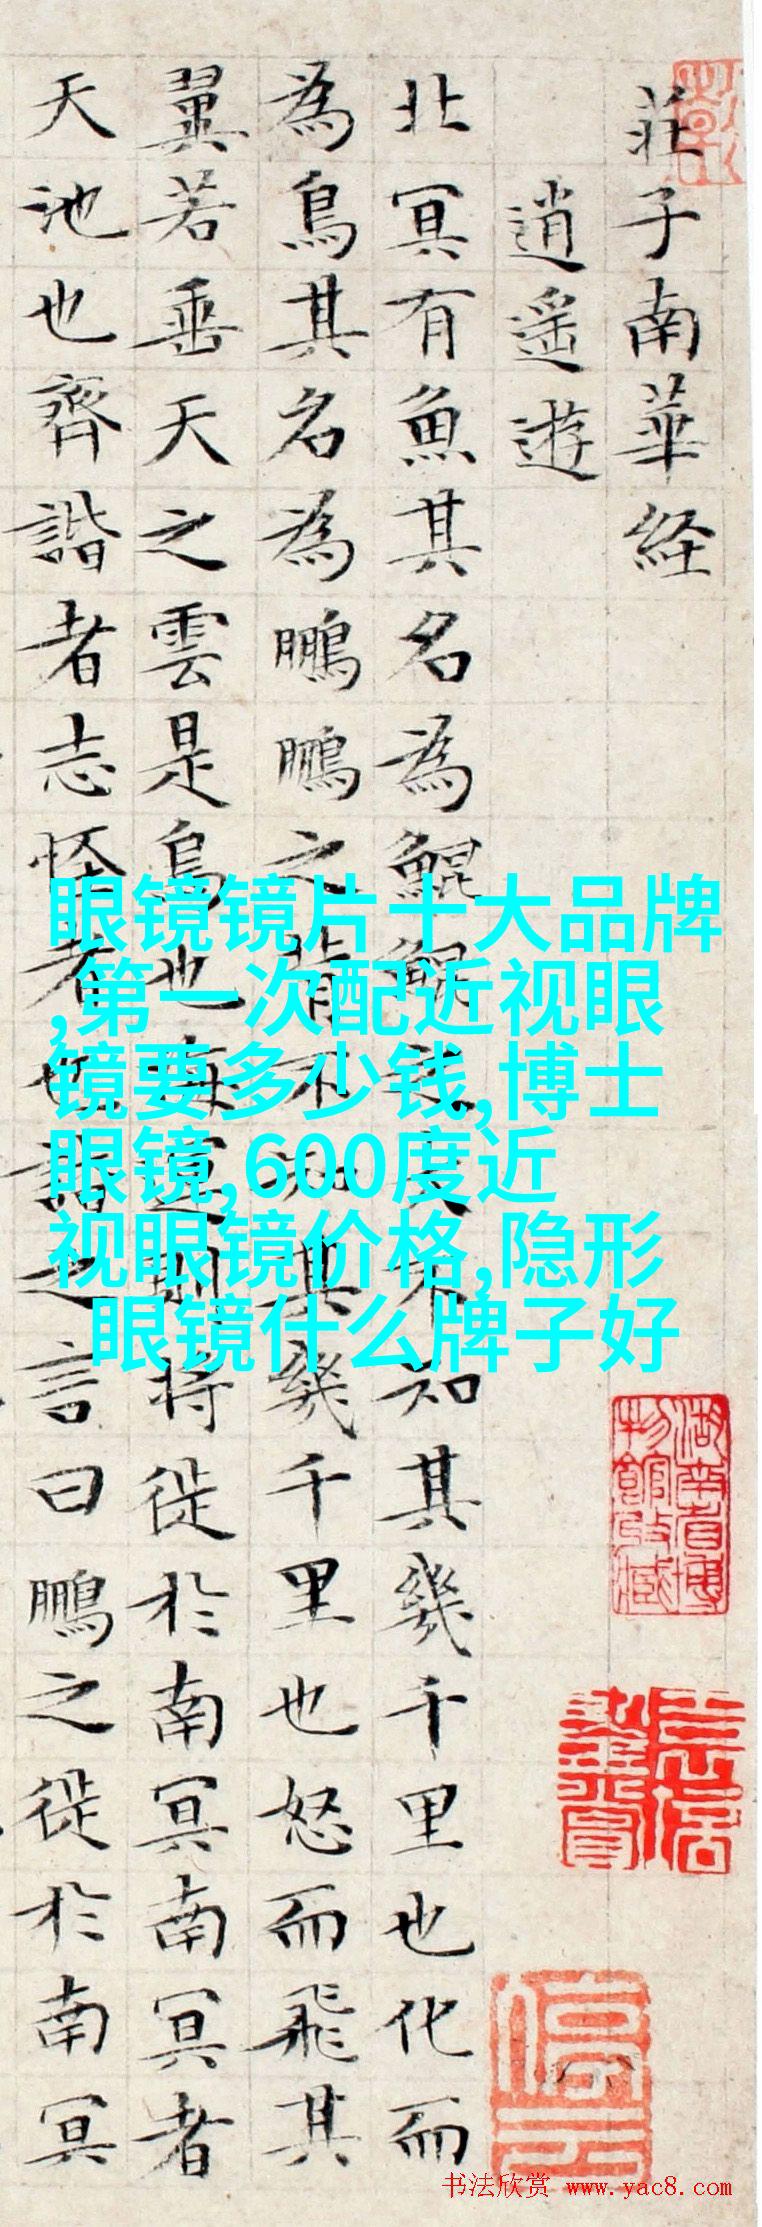 莊子南華経
逍遥遊
北冥有魚其名為鯤鯤之大不知其幾千里也化而
為鳥其名為鵬鵬之背不知其幾千里也怒而飛其
翼若垂天之雲是鳥也海運則將徙於南冥南冥者
天池也齊諧者志怪者也諧之言曰鵬之徙於南冥
眼镜镜片十大品牌
,第一次配近视眼
镜要多少钱,博士
眼镜,600度近
视眼镜价格,隐形
眼镜什么牌子好
湖南省博
物館收藏
书法欣赏 www.yac8.com